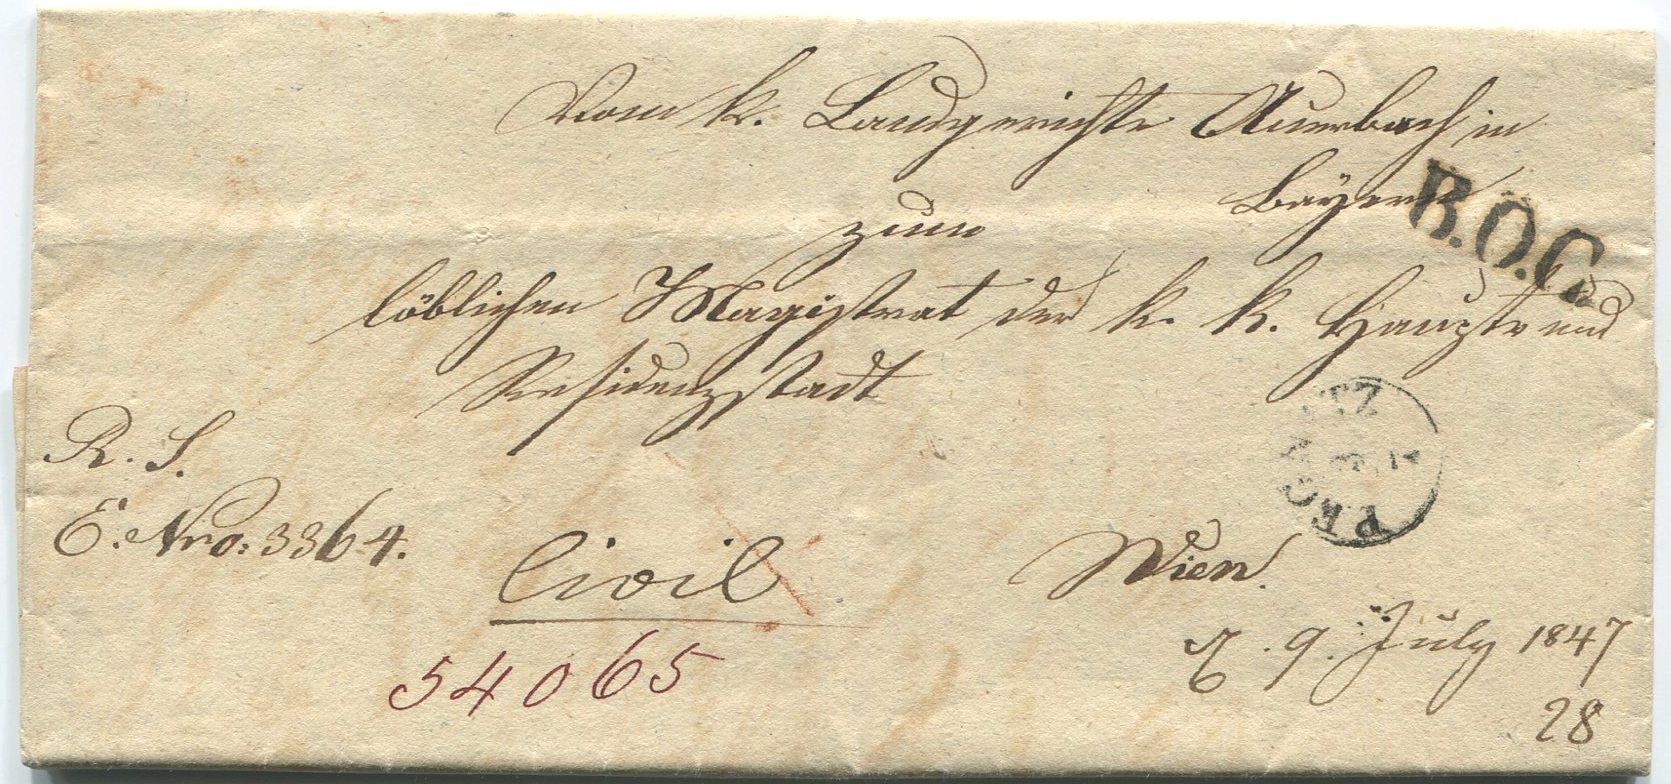 Vom k. Landgerichte Auerbach in
Bayern
B.O.C.
zum
löblichen Magistrat der k. k. Haupt- und
Residenzstadt
R. S.
E. Nro: 3364.
Civil
Wien.
PEGNITZ
54065
9. July 1847
28